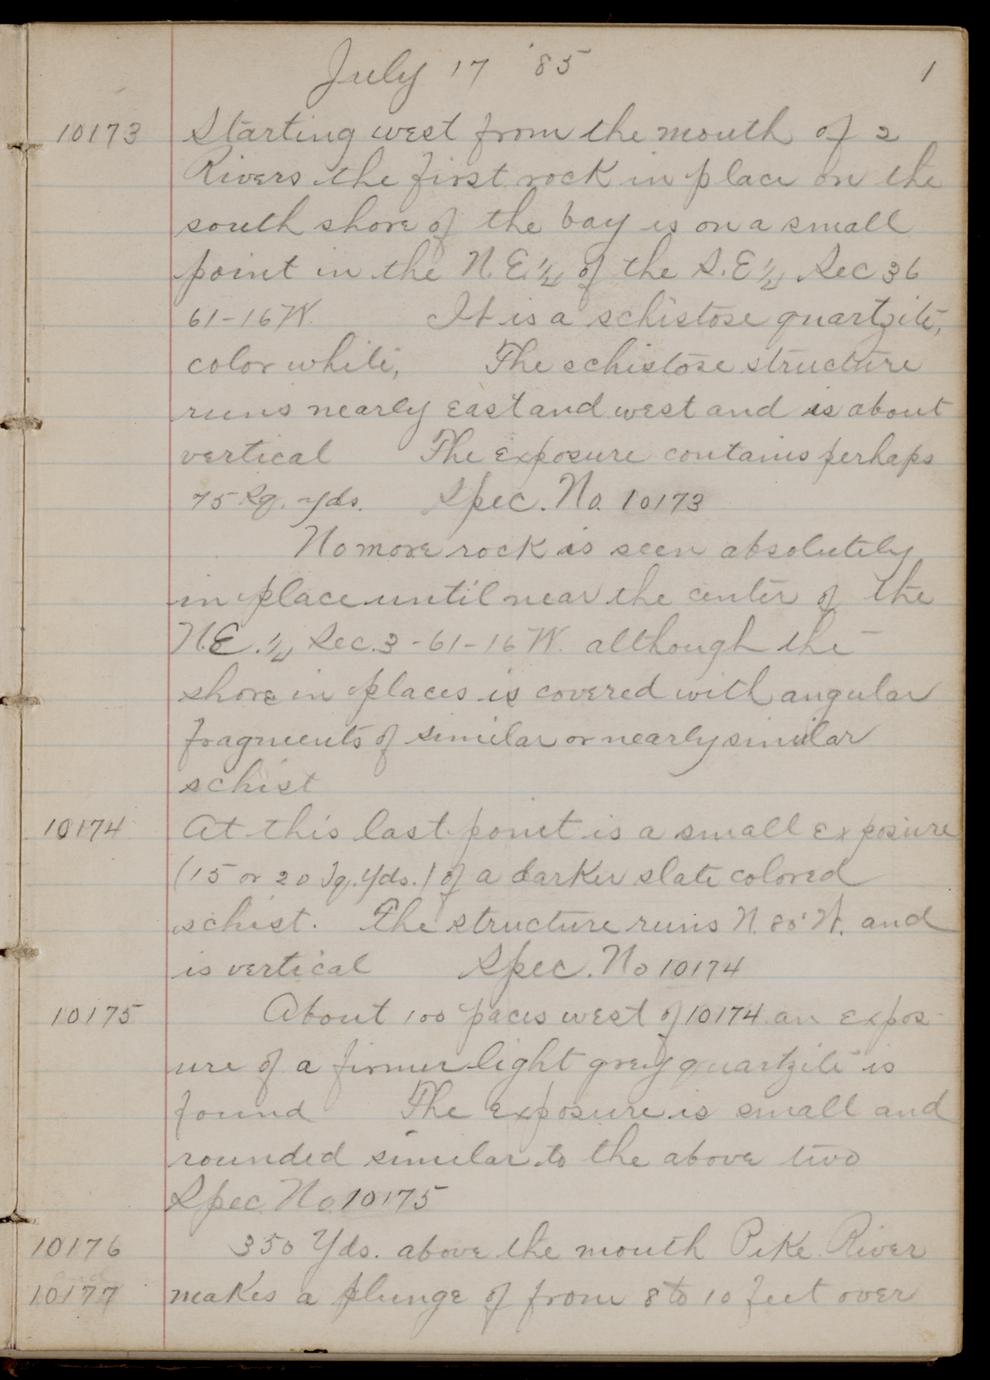 July 17 '85 1
10173 Starting west from the mouth of 2
Rivers the first rock in place on the
south shore of the bay is on a small
point in the N.E.¼ of the S.E.¼ Sec 36
61-16W. It is a schistose quartzite,
color white, The schistose structure
runs nearly east and west and is about
vertical The exposure contains perhaps
75 Sq. yds. Spec. No. 10173
No more rock is seen absolutely
in place until near the center of the
N.E.¼ Sec. 3-61-16W. although the
shore in places is covered with angular
fragments of similar or nearly similar
schist
10174 At this last point is a small exposure
(15 or 20 Sq. Yds.) of a darker slate colored
schist. The structure runs N. 80° W. and
is vertical Spec. No 10174
10175 About 100 paces west of 10174 an expos-
ure of a firmer light grey quartzite is
found The exposure is small and
rounded similar to the above two
Spec. No. 10175
10176 350 Yds. above the mouth Pike River
and
10177 makes a plunge of from 8 to 10 feet over